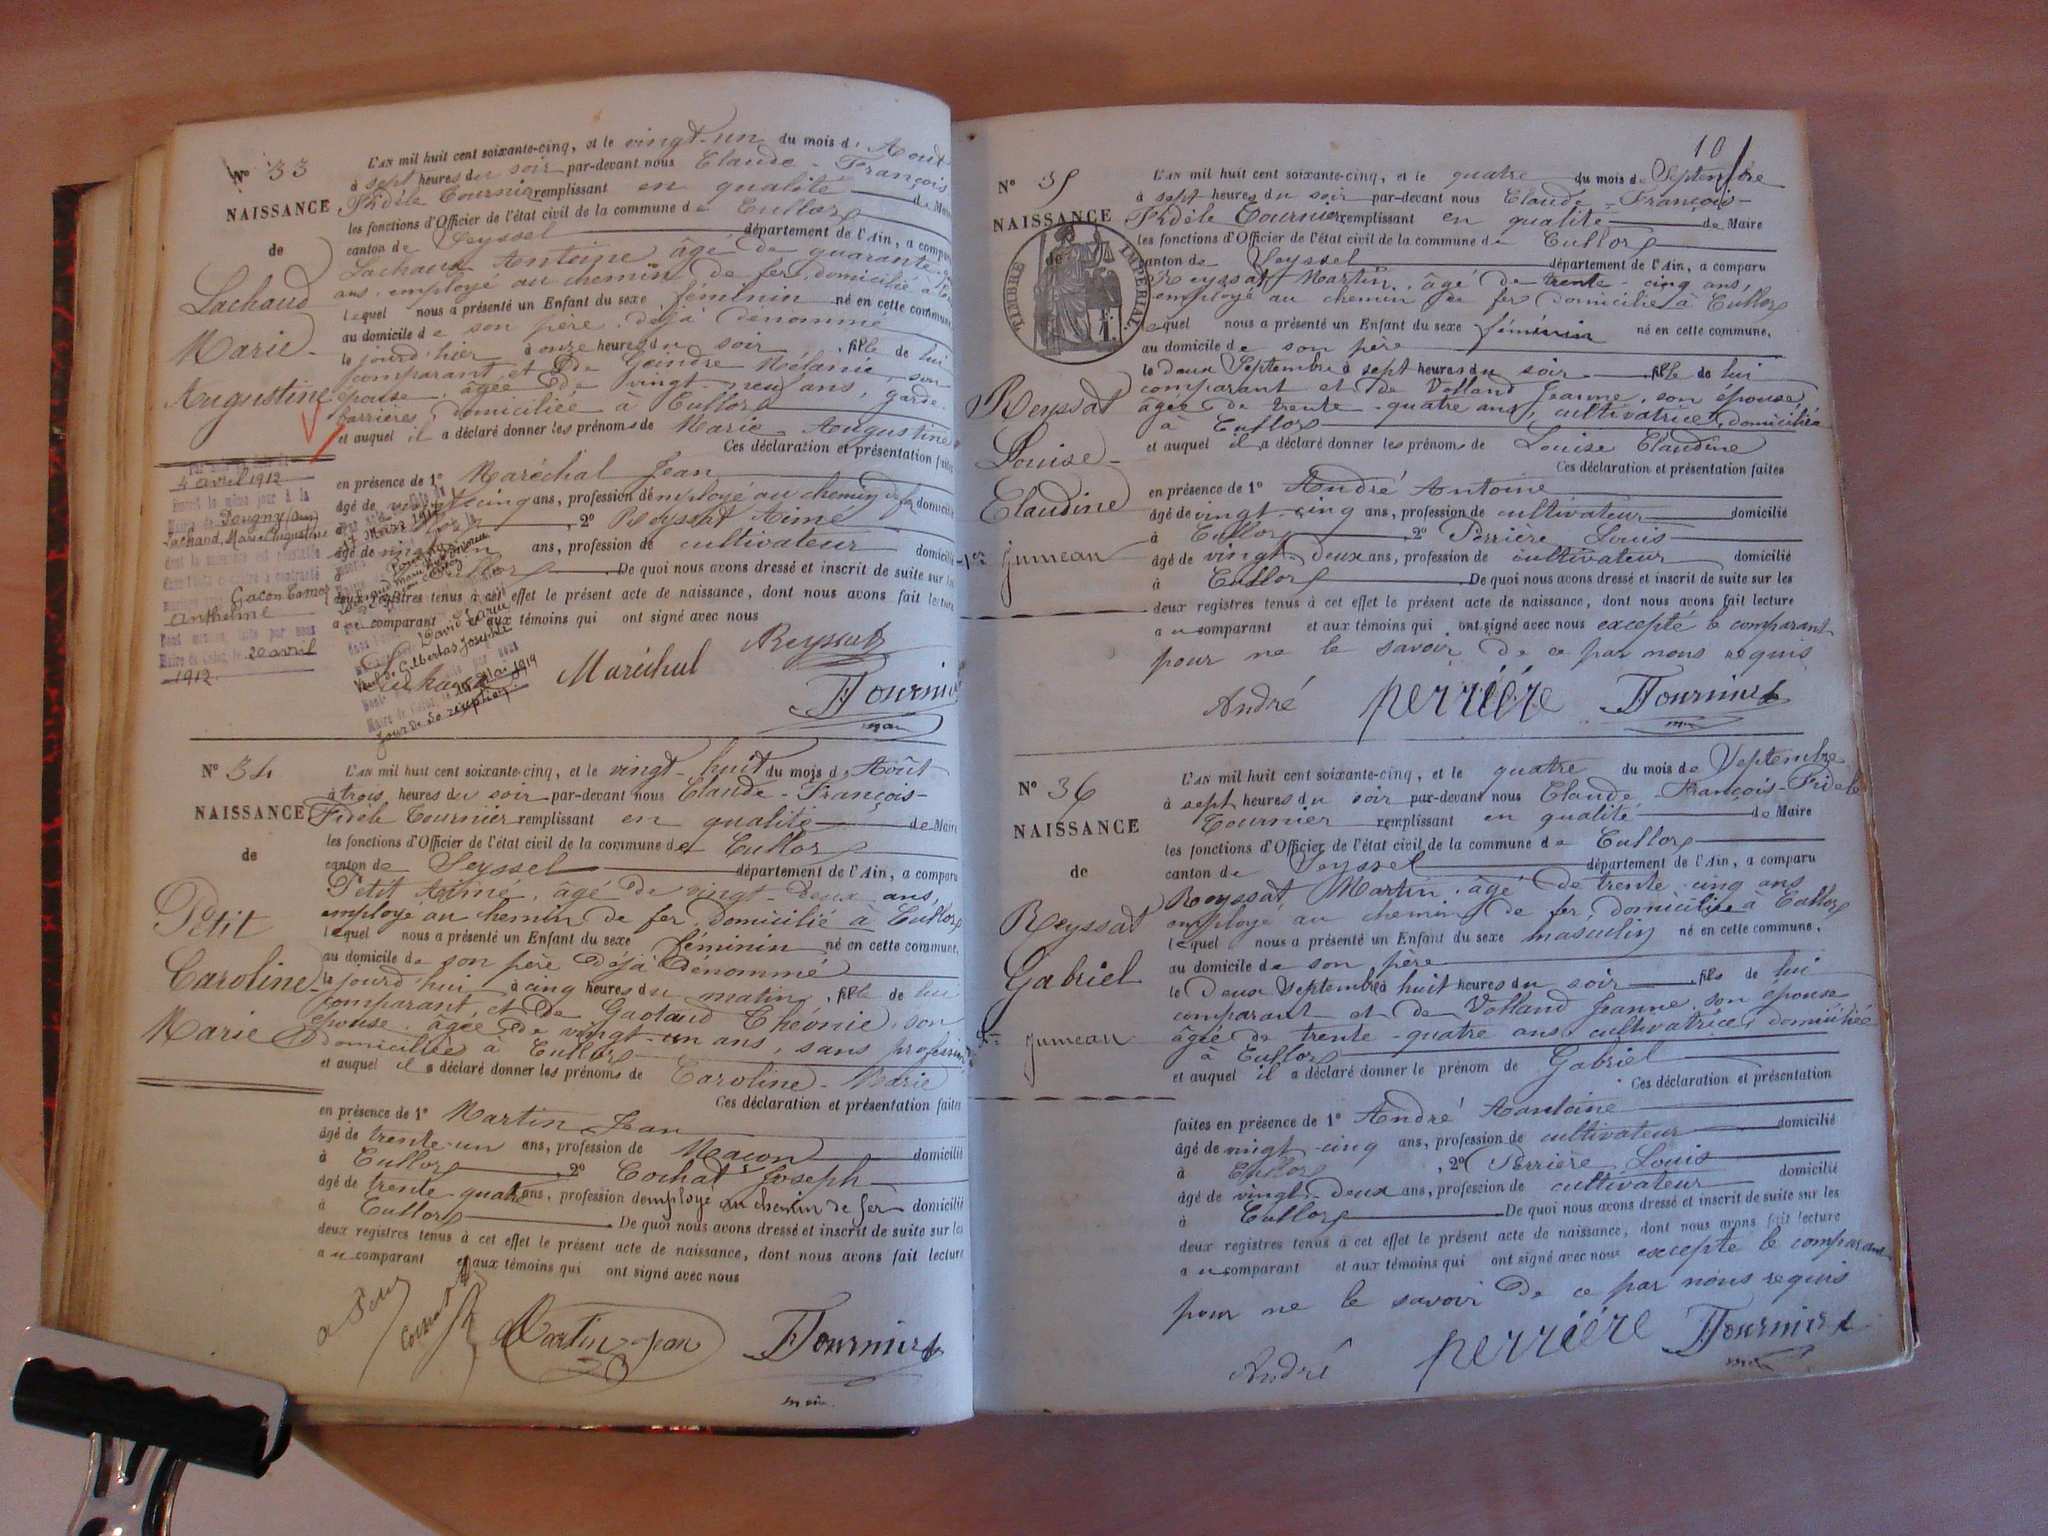 Nº 33
NAISSANCE
de
Lachaud
Marie
Augustine
L'AN mil huit cent soixante-cinq, et le vingt-un du mois d'Aout
à sept heures du soir par-devant nous Claude-François
Fidèle Tournier remplissant en qualité de Maire
les fonctions d'Officier de l'état civil de la commune de Culloz
canton de Seyssel département de l'Ain, a comparu
Lachaud Antoine âgé de quarante
ans, employé au chemin de fer, domicilié à
lequel nous a présenté un Enfant du sexe féminin né en cette commune,
au domicile de son père déjà dénommé
le jourd'hier à onze heures du soir, fille de lui
comparant et de Geindre Mélanie, son
épouse, âgée de vingt-neuf ans, garde
barrières, domiciliée à Culloz
et auquel il a déclaré donner les prénoms de Marie Augustine
Ces déclaration et présentation faites
en présence de 1º Maréchal Jean
âgé de cinq ans, profession d'employé au chemin de fer domicilié
2º Reyssat Aimé
âgé de ans, profession de cultivateur domicilié
Culloz De quoi nous avons dressé et inscrit de suite sur les
registres tenus à cet effet le présent acte de naissance, dont nous avons fait lecture
au comparant et aux témoins qui ont signé avec nous
4 avril 1912
Inscrit le même jour à la
Mairie de Pougny (Ain)
Lachaud, Marie Augustine
dont la naissance est constatée
dans l'acte ci-contre a contracté
mariage avec Gacon Camoz
Anthelme
Dont mention, faite par nous
Maire de Culoz, le 20 avril
1912.
17 Mars 1919
David Marie
Veuf de Gilbertas Josephte
Mai 1919
jour de sa réception
Maréchal
Reyssat
Tournier
maire
Nº 34
NAISSANCE
de
Petit
Caroline
Marie
L'AN mil huit cent soixante-cinq, et le vingt-huit du mois d'Août
à trois heures du soir par-devant nous Claude-François-
Fidele Tournier remplissant en qualité de Maire
les fonctions d'Officier de l'état civil de la commune de Culloz
canton de Seyssel département de l'Ain, a comparu
Petit Aimé, âgé de vingt-deux ans,
employé au chemin de fer, domicilié à Culloz
lequel nous a présenté un Enfant du sexe féminin né en cette commune,
au domicile de son père déjà dénommé
le jourd'hui à cinq heures du matin, fille de lui
comparant, et de Théonie, son
épouse, âgée de vingt-un ans, sans profession
domiciliée à Culloz
et auquel il a déclaré donner les prénoms de Caroline-Marie
Ces déclaration et présentation faites
en présence de 1º Martin Jean
âgé de trente-un ans, profession de Maçon domicilié
à Culloz, 2º Cochat Joseph
âgé de trente-quatre ans, profession d'employé au chemin de fer domicilié
à Culloz De quoi nous avons dressé et inscrit de suite sur les
deux registres tenus à cet effet le présent acte de naissance, dont nous avons fait lecture
au comparant et aux témoins qui ont signé avec nous
Martin Jean
Tournier
maire
101
Nº 35
NAISSANCE
de
TIMBRE IMPÉRIAL
Reyssat
Louise
Claudine
1er jumeau
L'AN mil huit cent soixante-cinq, et le quatre du mois de Septembre
à sept heures du soir par-devant nous Claude-François-
Fidèle Tournier remplissant en qualité de Maire
les fonctions d'Officier de l'état civil de la commune de Culloz
canton de Seyssel département de l'Ain, a comparu
Reyssat Martin, âgé de trente-cinq ans,
employé au chemin de fer domicilié à Culloz
lequel nous a présenté un Enfant du sexe féminin né en cette commune,
au domicile de son père
le deux Septembre à sept heures du soir fille de lui
comparant et de Volland Jeanne, son épouse,
âgée de trente-quatre ans, cultivatrice, domiciliée
à Culloz
et auquel il a déclaré donner les prénoms de Louise Claudine
Ces déclaration et présentation faites
en présence de 1º André Antoine
âgé de vingt-cinq ans, profession de cultivateur domicilié
à Culloz 2º Perrière Louis
âgé de vingt-deux ans, profession de cultivateur domicilié
à Culloz De quoi nous avons dressé et inscrit de suite sur les
deux registres tenus à cet effet le présent acte de naissance, dont nous avons fait lecture
au comparant et aux témoins qui ont signé avec nous excepté le comparant
pour ne le savoir de ce par nous requis
André perrière Tournier
Nº 36
NAISSANCE
de
Reyssat
Gabriel
jumeau
L'AN mil huit cent soixante-cinq, et le quatre du mois de Septembre
à sept heures du soir par-devant nous Claude-François-Fidele
Tournier remplissant en qualité de Maire
les fonctions d'Officier de l'état civil de la commune de Culloz
canton de Seyssel département de l'Ain, a comparu
Reyssat Martin, âgé de trente-cinq ans
employé au chemin de fer, domicilié à Culloz
lequel nous a présenté un Enfant du sexe masculin né en cette commune,
au domicile de son père
le deux Septembre à huit heures du soir fils de lui
comparant et de Volland Jeanne, son épouse
âgée de trente-quatre ans cultivatrice, domiciliée
à Culloz
et auquel il a déclaré donner le prénom de Gabriel
Ces déclaration et présentation
faites en présence de 1º André Antoine
âgé de vingt-cinq ans, profession de cultivateur domicilié
à Culloz, 2º Perrière Louis
âgé de vingt-deux ans, profession de cultivateur domicilié
à Culloz De quoi nous avons dressé et inscrit de suite sur les
deux registres tenus à cet effet le présent acte de naissance, dont nous avons fait lecture
au comparant et aux témoins qui ont signé avec nous excepté le comparant
pour ne le savoir de ce par nous requis
André perrière Tournier